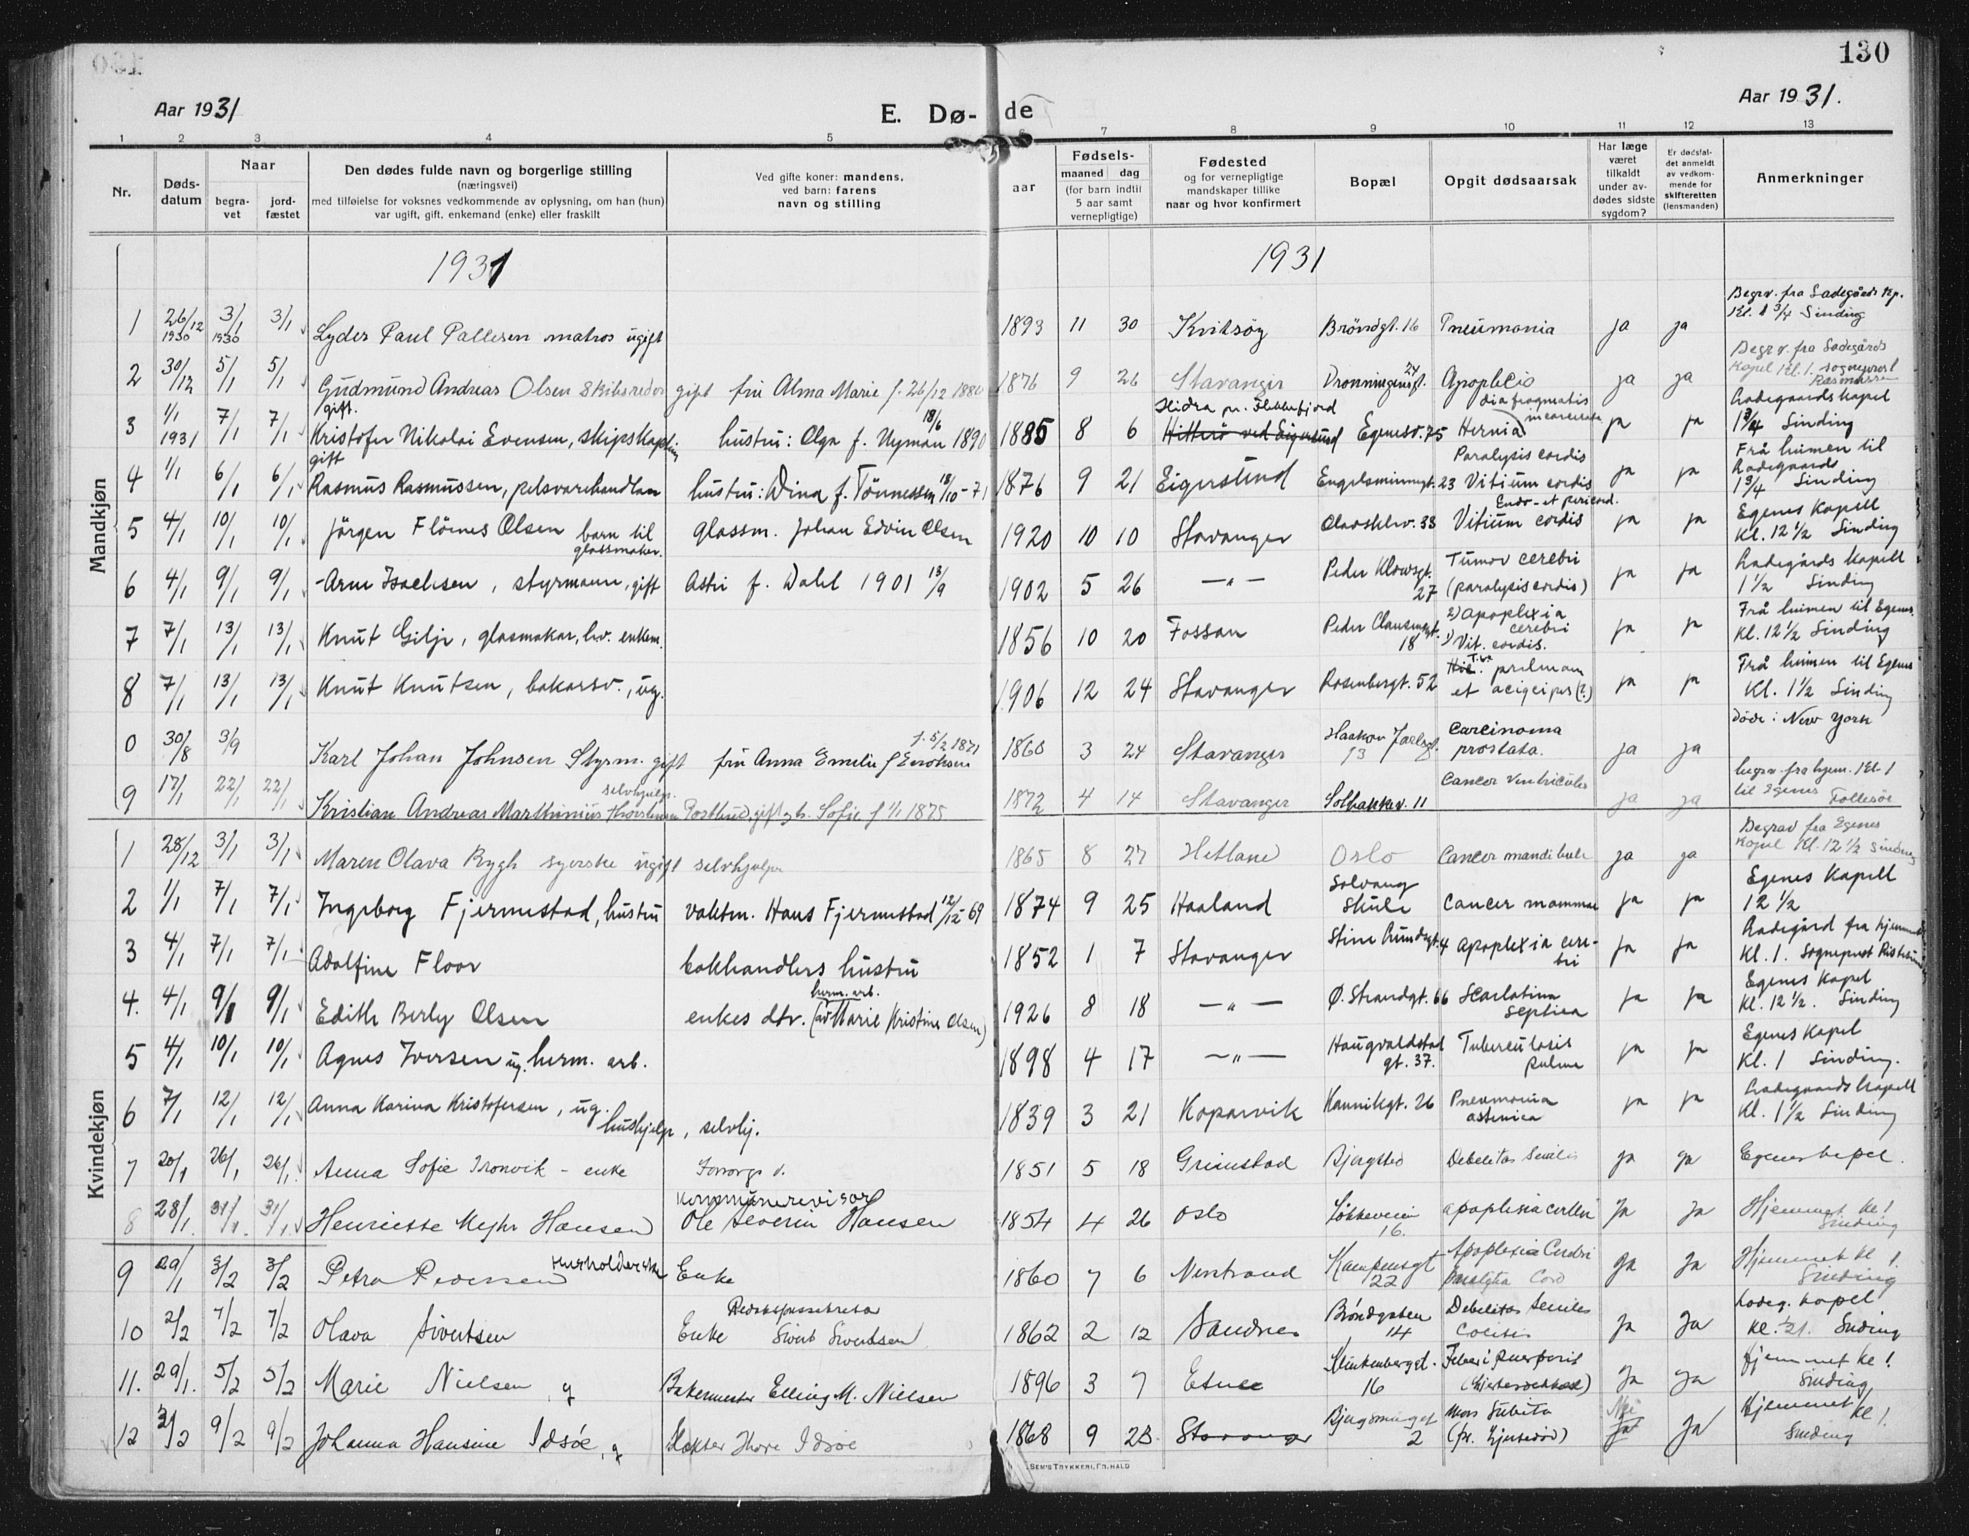 130
Aar 1931
E. Dø-
de
Aar 1931.
1 2 3 4 5 6 7 8 9 10 11 12 13
Nr.
Døds-
datum
Naar
begra-
vet
jord-
fæstet
Den dødes fulde navn og borgerlige stilling
(næringsvei)
med tilføielse for voksnes vedkommende av oplysning, om han (hun)
var ugift, gift, enkemand (enke) eller fraskilt
Ved gifte koner: mandens,
ved barn: farens
navn og stilling
aar
Fødsels-
maaned dag
(for barn indtil
5 aar samt
vernepligtige)
Fødested
og for vernepligtige
mandskaper tillike
naar og hvor konfirmert
Bopæl
Opgit dødsaarsak
Har læge
været
tilkaldt
under av-
dødes sidste
sygdom?
Er dødsfal-
det anmeldt
av vedkom-
mende for
skifteretten
(lensmanden)
Anmerkninger
Mandkjøn
1931 1931
Begrv. fra Ladegårds kp.
Kl. 1 3/4 Sinding
1 26/12 1930 3/1 1930 3/1 Lyder Paul Pallesen matros ugift 1893 11 30 Kvitsøy Brøndgt. 16 Pneumonia ja ja
Begrv. fra Ladegårds
Kapel Kl. 1. sogneprest
Rasmussen
2 30/12 5/1 5/1 Gudmund Andreas Olsen Skibsreder gift fru Alma Marie f. 26/12 1880 1876 9 26 Stavanger Dronningensgt. 24 Apoplexio ja ja
gift. 18/6 Hidra pr. Flekkefjord diafragmatis incarcerata Ladegaards kapel
3 1/1 1931 7/1 7/1 Kristofer Nikolai Evensen, skipskaptein hustru: Olga f. Nyman 1890 1885 8 6 Hitterø ved Eigersund Egenesv. 75 Hernia ja ja 1 3/4 Sinding
gift Paralysis cordis Frå heimen til
Ladegaards
4 1/1 6/1 6/1 Rasmus Rasmussen, pelsvarehandlar hustru: Dina f. Tønnessen 18/10-71 1876 9 21 Eigersund Engelsminnegt. 23 Vitium cordis ja ja 1 3/4 Sinding
Endo- et pericard. Egenes Kapell
5 4/1 10/1 10/1 Jørgen Flörnes Olsen barn til glassmaker. glassm. Johan Edvin Olsen 1920 10 10 Stavanger Olavskleiv. 33 Vitium cordis ja ja Kl. 12 1/2 Sinding
Tumor cerebri Ladegårds kapell
6 4/1 9/1 9/1 Arne Isachsen, styrmann, gift Astri f. Dahl 1901 13/9 1902 5 26 —„— Peder Klowsgt. 27 (paralysis cordis) ja ja 1 1/2 Sinding
2) apoplexia cerebri Frå heimen til Egenes
7 7/1 13/1 13/1 Knut Gilje, glasmakar, hv. enkem. 1856 10 20 Fossan Peder Clausensgt. 18 1) Vit. cordis. ja ja kl. 12 1/2 Sinding
Frå heimen til Egenes
8 7/1 13/1 13/1 Knut Knutsen, bakarsv., ug. 1906 12 24 Stavanger Rosenbergt. 52 ja ja Kl. 1 1/2 Sinding
Død i New York
0 30/8 3/9 Karl Johan Johnsen Styrm. gift fru Anna Emelie f. Eriksen f. 5/2 1871 1860 3 24 Stavanger Haakon Jarlsgt. 13 Carcinoma prostata. ja ja
selvhjulp. Cancer ventriculi begrv. fra hjem. Kl. 1
9 17/1 22/1 22/1 Kristian Andreas Marthinius Thorstensen Gift Sofie f 1/1 1875 1872 4 14 Stavanger Solbakkev. 11 ja ja til Egenes Follesøe
Kvindekjøn
Begrav fra Egenes
Kapel Kl. 12 1/2 Sinding
1 28/12 3/1 3/1 Maren Olava Rygh syerske ugift selvhjulpen 1865 8 27 Hetland Oslo Cancer mandibule ja ja
Egenes Kapell
2 1/1 7/1 7/1 Ingeborg Fjermestad, hustru vaktm. Hans Fjermestad 12/12-69 1874 9 25 Haaland Solvang Skule Cancer mammae ja ja 12 1/2
Ladegård fra hjemmet
3 4/1 7/1 7/1 Adolfine Floor bokhandlers hustru 1852 1 7 Stavanger Stine Lundsgt. 4 apoplexia cerebri ja ja Kl. 1. Sogneprest
herm. arb. Egenes Kapel
4. 4/1 9/1 9/1 Edith Berly Olsen enkes dtr. (av Marie Kristine Olsen) 1926 8 18 —„— Ø. Strandgt. 66 Scarlatina septica ja ja Kl. 12 1/2. Sinding
Egenes Kapel
5 4/1 10/1 10/1 Agnes Iversen ug. herm. arb. 1898 4 17 —„— Haugvaldstad gt. 37. Tuberculosis pulm. ja ja Kl. 1 Sinding.
Ladegaards kapell
6 7/1 12/1 12/1 Anna Karina Kristofersen, ug. hushjelp, selvhj. 1839 3 21 Koparvik Kannikgt. 26 Pneumonia astenica ja ja Kl. 1 1/2 Sinding
7 20/1 26/1 26/1 Anna Sofie Tronvik - enke Forsorgs v. 1851 5 18 Grimstad Bjergsted Debelitas Senilis ja ja Egenes kapel.
Kommunerevisor
8 28/1. 31/1. 31/1. Henriette Myhr Hansen Ole Severin Hansen 1854 4 26 Oslo Løkkeveien 16. apoplexia cerebri ja ja Hjemmet kl 1 Sinding
9 29/1 3/2 3/2 Petra Pedersen Husholderske Enke 1860 7 6 Nerstrand Kampensgt 22 Apoplexia Cerebri Paralysia Cord ja ja Hjemmet kl 1. Sinding
Ladeg. kapel
10 2/2 7/2 7/2 Olava Sivertsen Enke Sivert Sivertsen 1862 2 12 Sandnes Brøndgaten 14 Debelitas Seniles Colitis ja ja kl. 1/2 1. Sinding
11. 29/1. 5/2 5/2 Marie Nielsen, g Bakermester Elling M. Nielsen 1896 3 7 Etne Klinkenbergt. 16 Febris puerperil ja ja Hjemmet kl 1. Sinding
Nei
12 3/2 9/2 9/2 Johanna Hansine Idsöe, g Slakter Thore Idsöe 1868 9 23 Stavanger 2 Mors Subita (pr. hjertedød) ja ja Hjemmet kl 1. Sinding
SEM'S TRYKKERI, FR. HALD